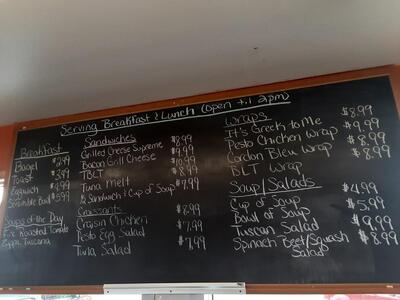 Serving Breakfast & Lunch (open til 2pm)
Breakfast
Bagel $2.49
Toast $3.49
Eggwich $4.99
Scramble Bowl $5.99
Soups of the Day
Fire Roasted Tomato
Zuppa Tuscana
Sandwiches
Grilled Cheese Supreme $8.99
Bacon Grill Cheese $9.99
TBLT $10.99
Tuna Melt $8.99
1/2 Sandwich & Cup of Soup $7.99
Croissants
Craisin Chicken $8.99
Pesto Egg Salad $7.99
Tuna Salad $7.99
Wraps
It's Greek to Me $8.99
Pesto Chicken Wrap $9.99
Cordon Bleu Wrap $8.99
BLT Wrap $8.99
Soup/Salads
Cup of Soup $4.99
Bowl of Soup $5.99
Tuscan Salad $9.99
Spinach Beet/Squash $8.99
Salad